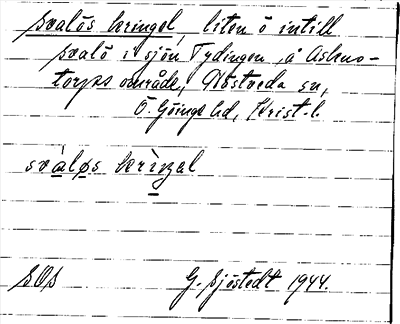 svalös kringel, liten ö intill
svalö i sjön Tydingen, å Asmo-
torps område, Nosveda sn,
Ö. Göinge hd, Krist. l.
svàløs krìŋal
SOS G. Sjöstedt 1944.